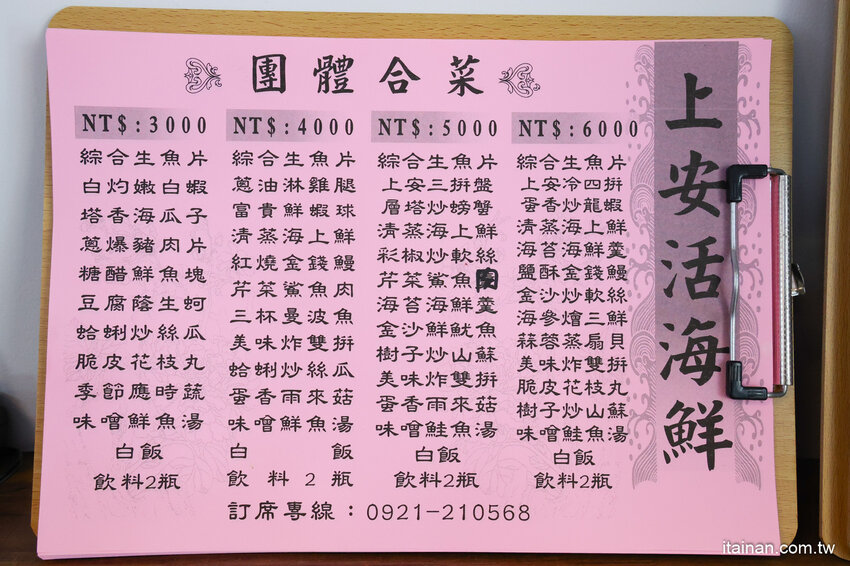 團體合菜
NT$:3000
綜合生魚片
白灼嫩白蝦
塔香海瓜子
蔥爆豬肉片
糖醋鮮魚塊
豆腐蔭生蚵
蛤蜊炒絲瓜
脆皮花枝丸
季節應時蔬
味噌鮮魚湯
白飯
飲料2瓶
NT$:4000
綜合生魚片
蔥油淋雞腿
富貴鮮蝦球
清蒸海上鮮
紅燒金錢鰻
芹菜鯊魚肉
三杯曼波魚
美味炸雙拼
蛤蜊炒絲瓜
蛋香雨來菇
味噌鮮魚湯
白飯
飲料2瓶
NT$:5000
綜合生魚片
上安三拼盤
層塔炒螃蟹
清蒸海上鮮
彩椒炒軟絲
芹菜鯊魚肉
海苔海鮮羹
金沙鮮魷魚
樹子炒山蘇
美味炸雙拼
蛋香雨來菇
味噌鮭魚湯
白飯
飲料2瓶
NT$:6000
綜合生魚片
上安冷四拼
蛋香炒龍蝦
清蒸海上鮮
海苔海鮮羹
鹽酥金錢鰻
金沙炒軟絲
海參燴三鮮
蒜蓉蒸扇貝
美味炸雙拼
脆皮花枝丸
樹子炒山蘇
味噌鮭魚湯
白飯
飲料2瓶
訂席專線：0921-210568
上安活海鮮
itainan.com.tw